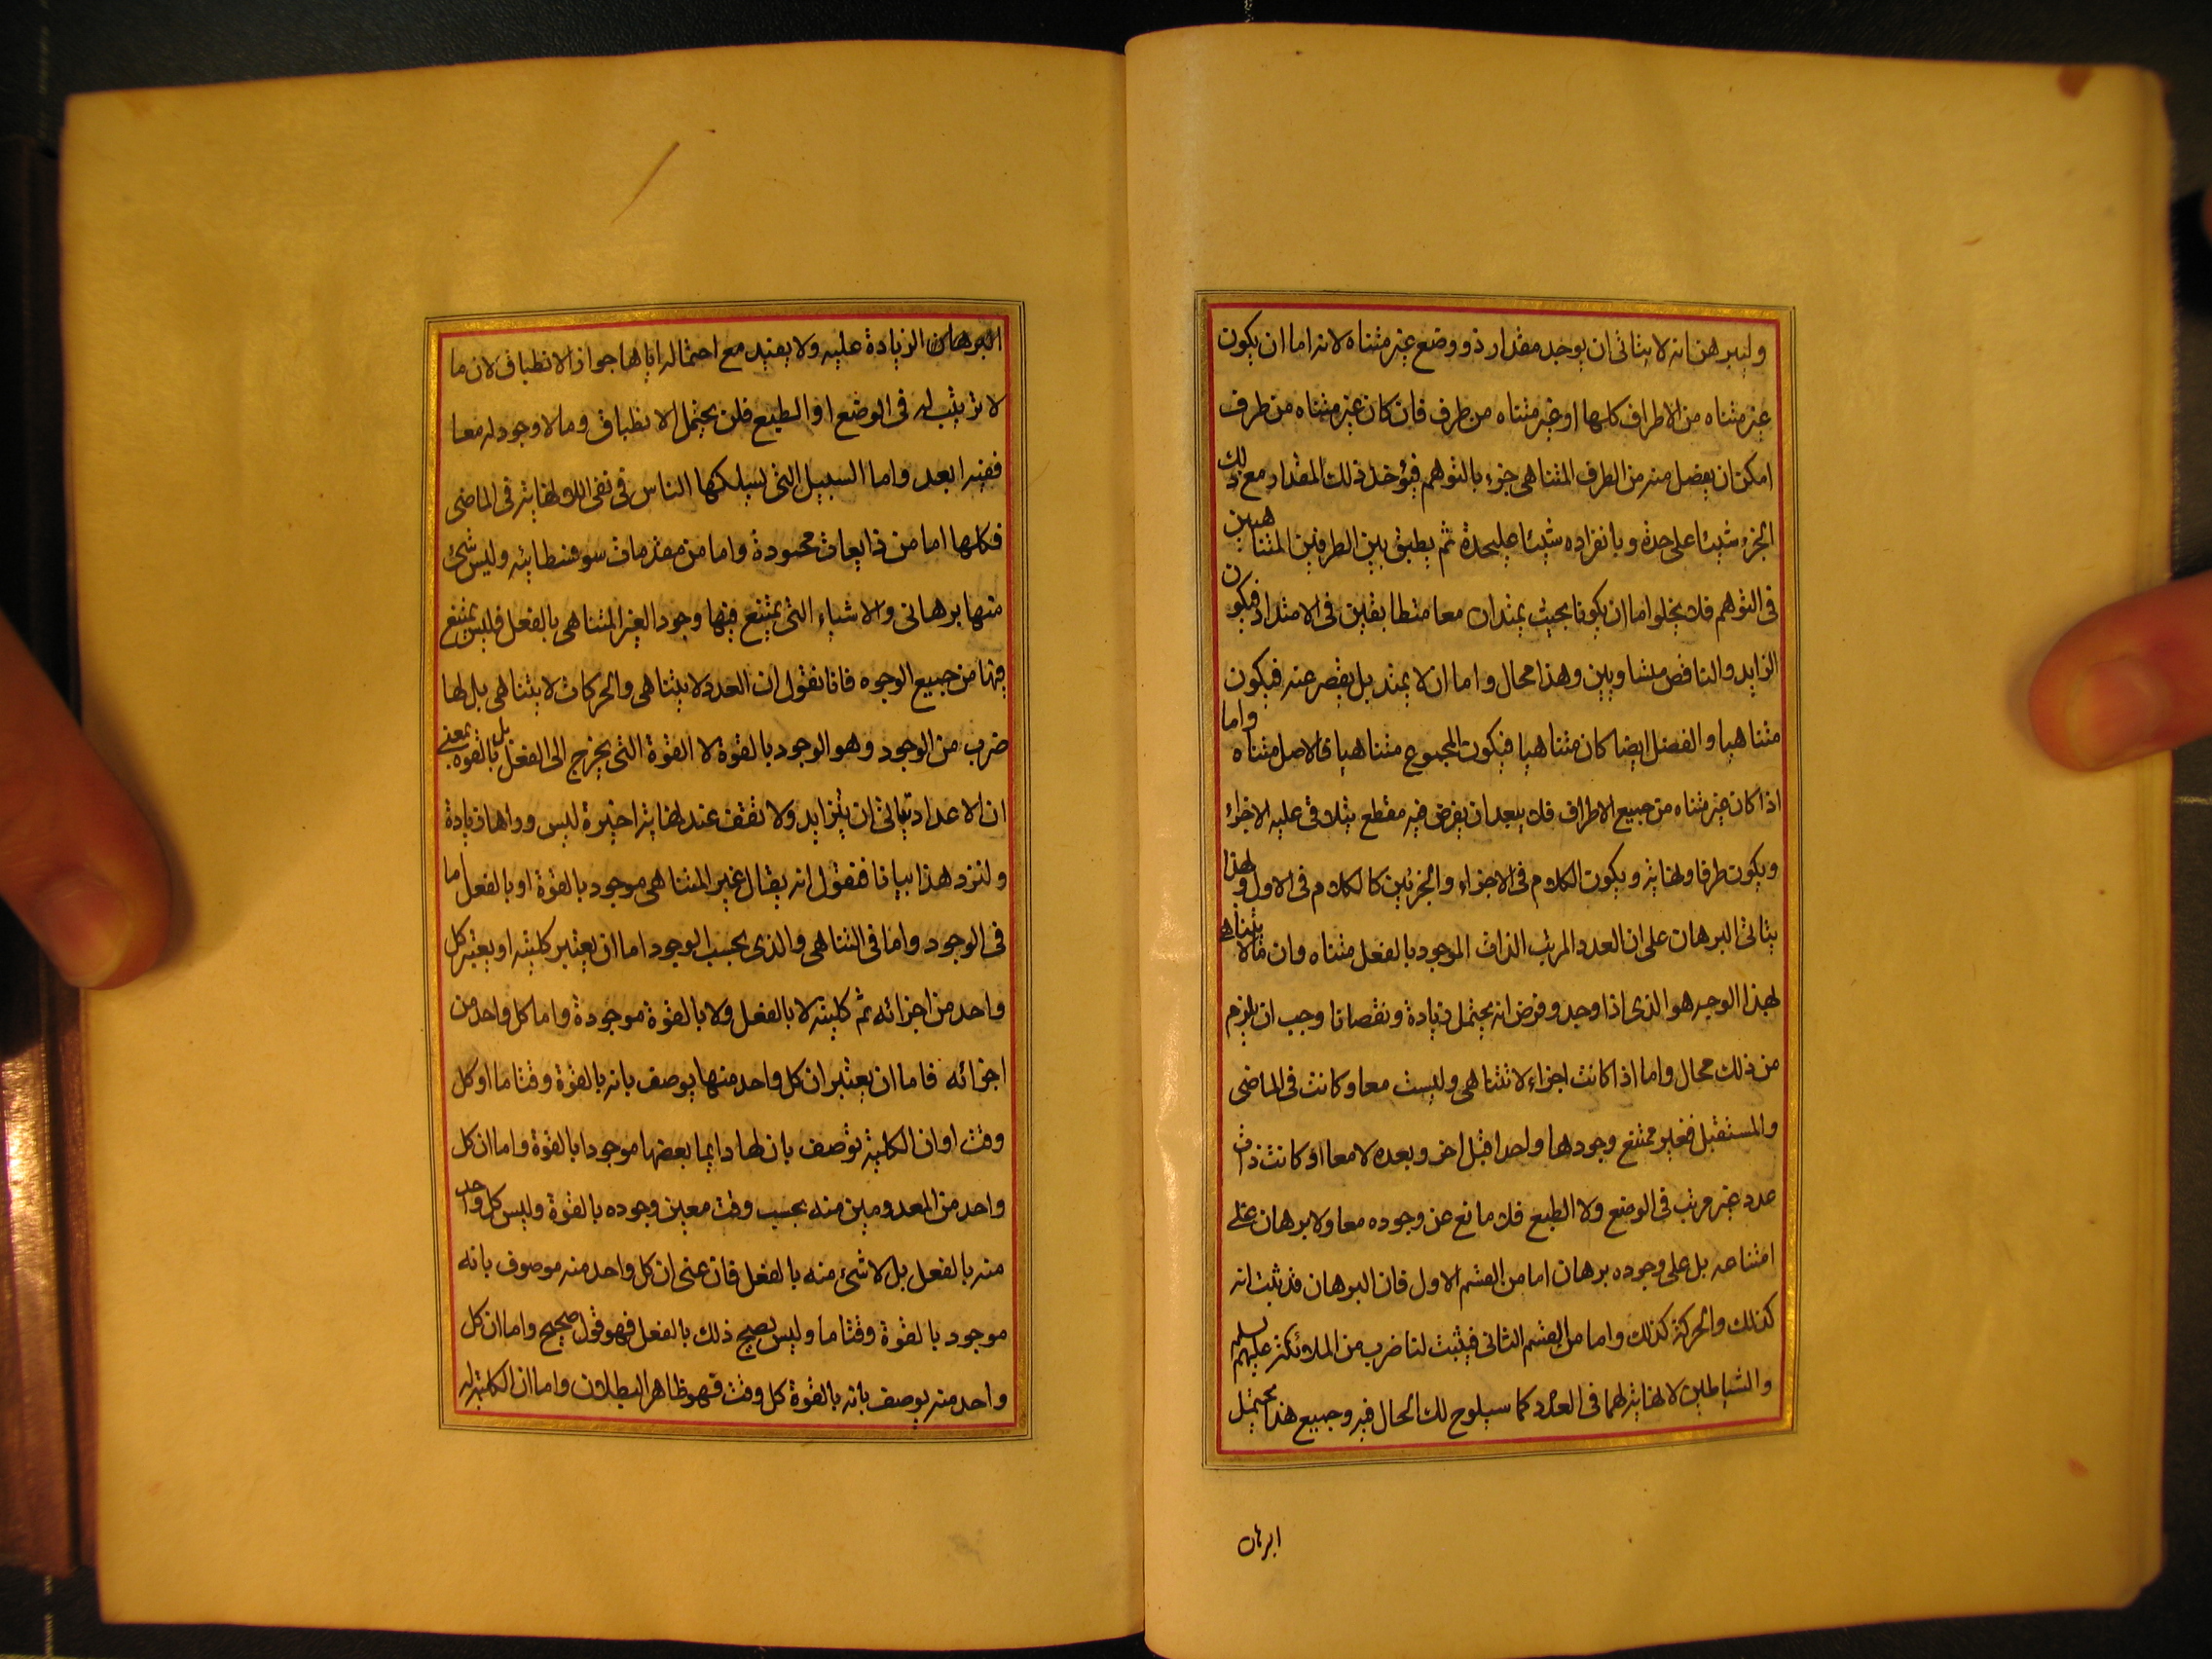 ولیبرهن انه لا یتاتی ان یوجد مقدار ذو وضع غیر متناه لانه اما ان یکون
غیر متناه من الاطراف کلها او غیر متناه من طرف فان کان غیر متناه من طرف
امکن ان یفصل منه من الطرف المتناهی جزء بالتوهم فیؤخذ ذلک المقدار مع ذلک
الجزء شیئا علی حدة وبانفراده شیئا علیحدة ثم یطبق بین الطرفین المتناهیین
فی التوهم فلا یخلوا اما ان یکونا بحیث یمتدان معا متطابقین فی الامتداد فیکون
الزاید والناقص متساویین وهذا محال واما ان لا یمتد بل یقصر عنه فیکون
متناهیا والفصل ایضا کان متناهیا فیکون المجموع متناهیا فالاصل متناه واما
اذا کان غیر متناه من جمیع الاطراف فلا یبعد ان یفرض فیه مقطع یتلاقی علیه الاجزاء
ویکون طرفا ونهایة ویکون الکلام فی الاجزاء والجزئین کالکلام فی الاول وبهذا
یتاتی البرهان علی ان العدد المرتب الذات الموجود بالفعل متناه وان ما لا یتناهی
بهذا الوجه هو الذی اذا وجد وفرض انه یحتمل زیادة ونقصانا وجب ان یلزم
من ذلک محال واما اذا کانت اجزاء لا تتناهی ولیست معا وکانت فی الماضی
والمستقبل فغیر ممتنع وجودها واحدا قبل اخر وبعده لا معا او کانت ذات
عدد غیر مرتب فی الوضع ولا الطبع فلا مانع عن وجوده معا ولا برهان علی
امتناعه بل علی وجوده برهان اما من القسم الاول فان البرهان قد ثبت انه
کذلک والحرکة کذلک واما من القسم الثانی فیثبت لنا ضرب من الملائکة علیهم
والشیاطین لا نهایة لهما فی العدد کما سیلوح لک الحال فیه وجمیع هذا یحتمل
ابرهان
البرهان الزیادة علیه ولا یفید مع احتماله ایاها جواز الانطباق لان ما
لا ترتیب له فی الوضع او الطبع فلن یحتمل الانطباق وما لا وجود له معا
ففیه ابعد واما السبیل التی یسلکها الناس فی نفی اللانهایة فی الماضی
فکلها اما من ذایعات محمودة واما من مقدمات سوفسطایئه ولیس شئ
منها برهانی والاشیاء التی یمتنع فیها وجود الغیر المتناهی بالفعل فلیس یمتنع
فیها من جمیع الوجوه فانا نقول ان العدد لا یتناهی والحرکات لا یتناهی بل لها
ضرب من الوجود وهو الوجود بالقوة لا القوة التی یخرج الی الفعل بل بالقوه بمعنی
ان الاعداد یتاتی ان یتزاید ولا تقف عند نهایة اخیرة لیس وراها زیادة
ولنزد هذا بیانا فنقول انه یقال غیر المتناهی موجود بالقوة او بالفعل اما
فی الوجود واما فی التناهی والذی بحسب الوجود اما ان یعتبر کلیته او یعتبر کل
واحد من اجزائه ثم کلیته لا بالفعل ولا بالقوة موجودة واما کل واحد من
اجزائه فاما ان یعتبر ان کل واحد منها یوصف بانه بالقوة وقتا ما او کل
وقت او ان الکلیة توصف بان لها دایما بعضها موجودا بالقوة واما ان کل
واحد من المعدومین منه بحسب وقت معین وجوده بالقوة ولیس کل واحد
منه بالفعل بل لا شئ منه بالفعل فان عنی ان کل واحد منه موصوف بانه
موجود بالقوة وقتا ما ولیس یصح ذلک بالفعل فهو قول صحیح واما ان کل
واحد منه یوصف بانه بالقوة کل وقت فهو ظاهر البطلان واما ان الکلیة له